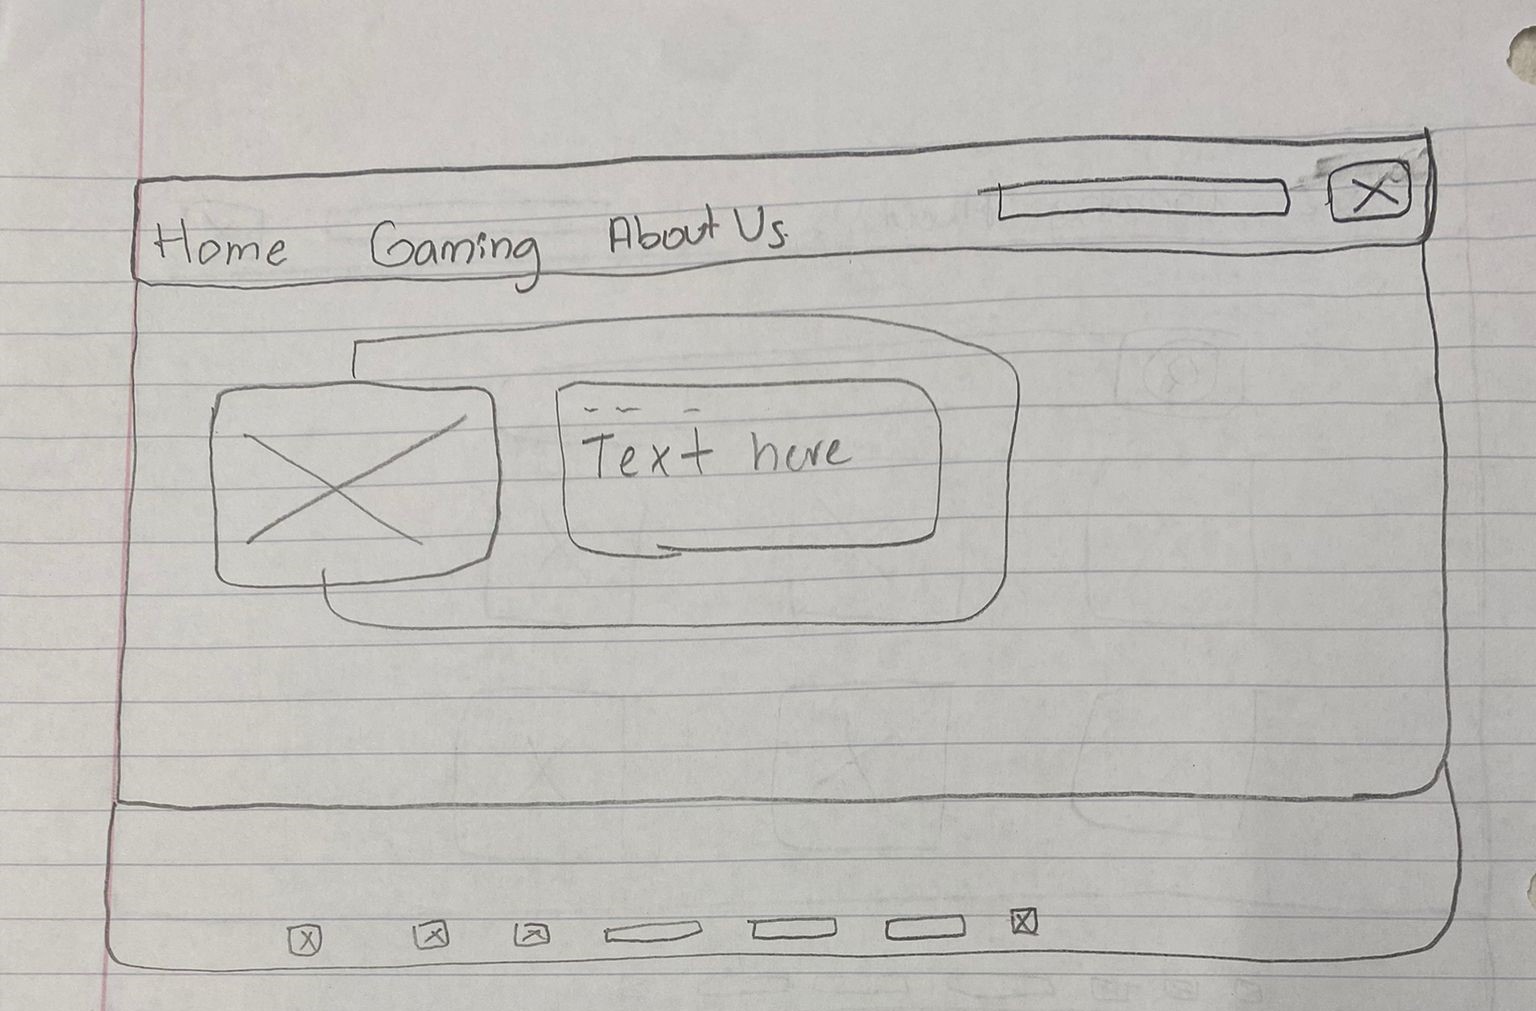 Home Gaming About Us
Text here